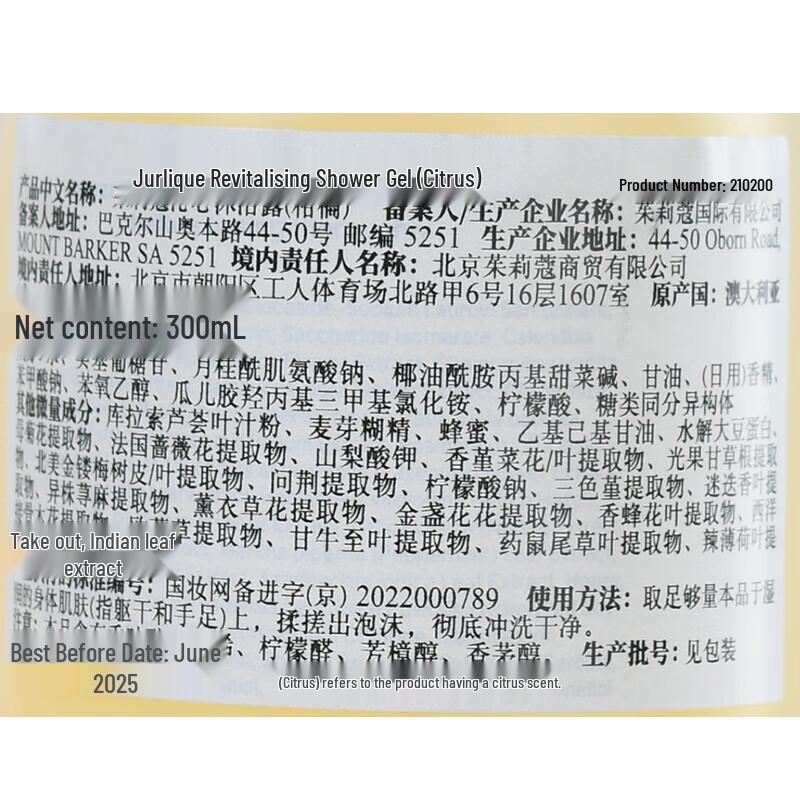 产品中文名称： Jurlique Revitalising Shower Gel (Citrus) Product Number: 210200
(柑橘) 备案人/生产企业名称：茱莉蔻国际有限公司
备案人地址：巴克尔山奥本路44-50号 邮编 5251 生产企业地址：44-50 Oborn Road,
MOUNT BARKER SA 5251 境内责任人名称：北京茱莉蔻商贸有限公司
境内责任人地址：北京市朝阳区工人体育场北路甲6号16层1607室 原产国：澳大利亚
Net content: 300mL
葡糖苷、月桂酰肌氨酸钠、椰油酰胺丙基甜菜碱、甘油、(日用)香精、
苯甲酸钠、苯氧乙醇、瓜儿胶羟丙基三甲基氯化铵、柠檬酸、糖类同分异构体
其他微量成分：库拉索芦荟叶汁粉、麦芽糊精、蜂蜜、乙基己基甘油、水解大豆蛋白、
母菊花提取物、法国蔷薇花提取物、山梨酸钾、香堇菜花/叶提取物、光果甘草根提取
物、北美金缕梅树皮/叶提取物、问荆提取物、柠檬酸钠、三色堇提取物、迷迭香叶提
取物、异株荨麻提取物、薰衣草花提取物、金盏花花提取物、香蜂花叶提取物、西洋
草提取物、甘牛至叶提取物、药鼠尾草叶提取物、辣薄荷叶提
Take out, Indian leaf
extract
标准编号：国妆网备进字(京) 2022000789 使用方法：取足够量本品于湿
的身体肌肤(指躯干和手足)上，揉搓出泡沫，彻底冲洗干净。
柠檬醛、芳樟醇、香茅醇 生产批号：见包装
Best Before Date: June
2025
(Citrus) refers to the product having a citrus scent.